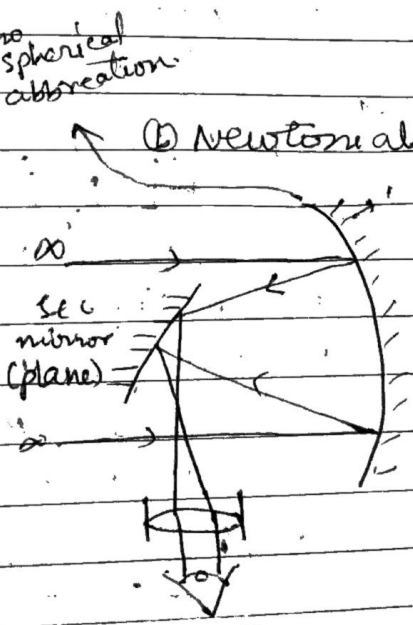 no
spherical
abbreation.
(b) Newtonial
∞
sec
mirror
(plane)
∞